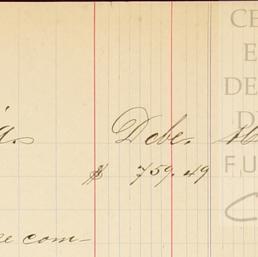 Debe.
$ 759.49
se com-
CE
E
DE
D
FU